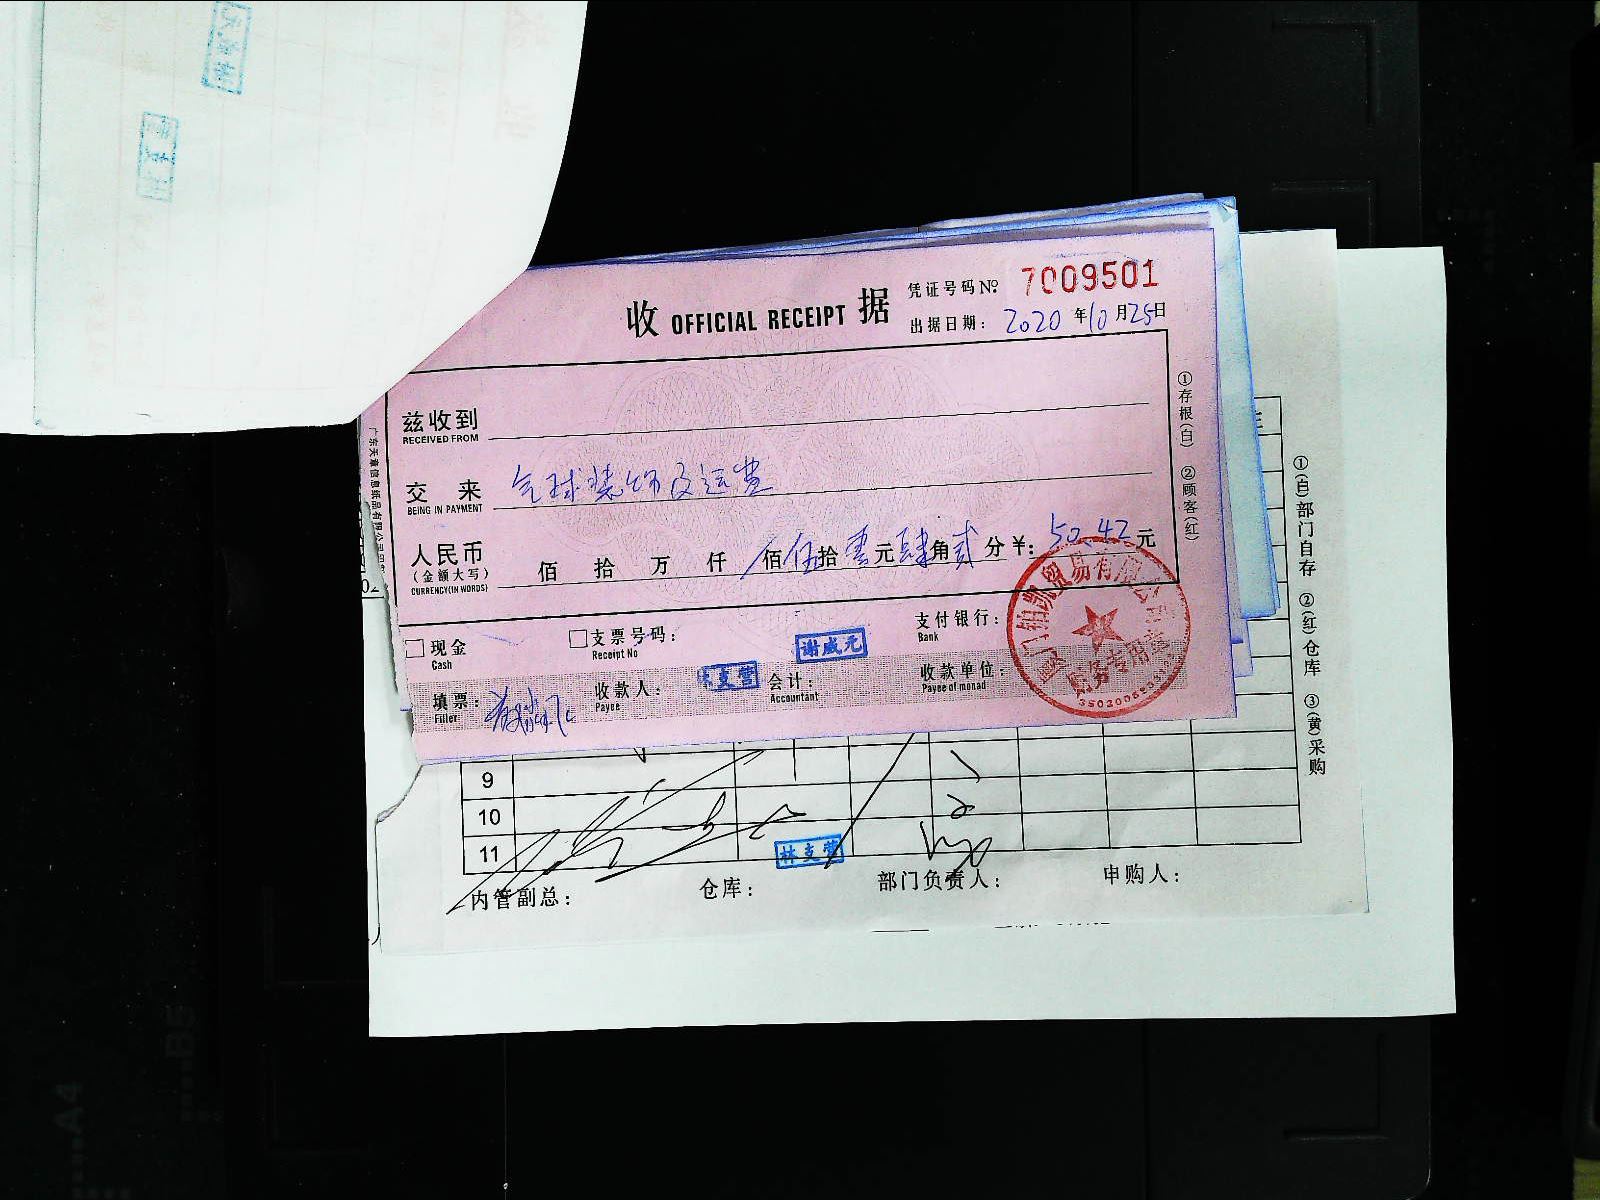 收 OFFICIAL RECEIPT 据
凭证号码 № 7009501
出据日期： 2020 年 10 月 25 日
兹收到
RECEIVED FROM
交 来 气球装饰及运费
BEING IN PAYMENT
人民币 佰 拾 万 仟 佰 伍 拾 壹 元 肆 角 贰 分 ¥： 50.42 元
（金额大写）
CURRENCY(IN WORDS)
①存根(白) ②顾客(红)
现金
Cash
支票号码：
Receipt No
支付银行：
Bank
填票：
Filler
收款人：
Payee
林支营
会计：
Accountant
谢威元
收款单位：
Payee of monad
贸易有限公司
财务专用章
9
10
11
林支营
内管副总： 仓库： 部门负责人： 申购人：
①(白)部门自存 ②(红)仓库 ③(黄)采购